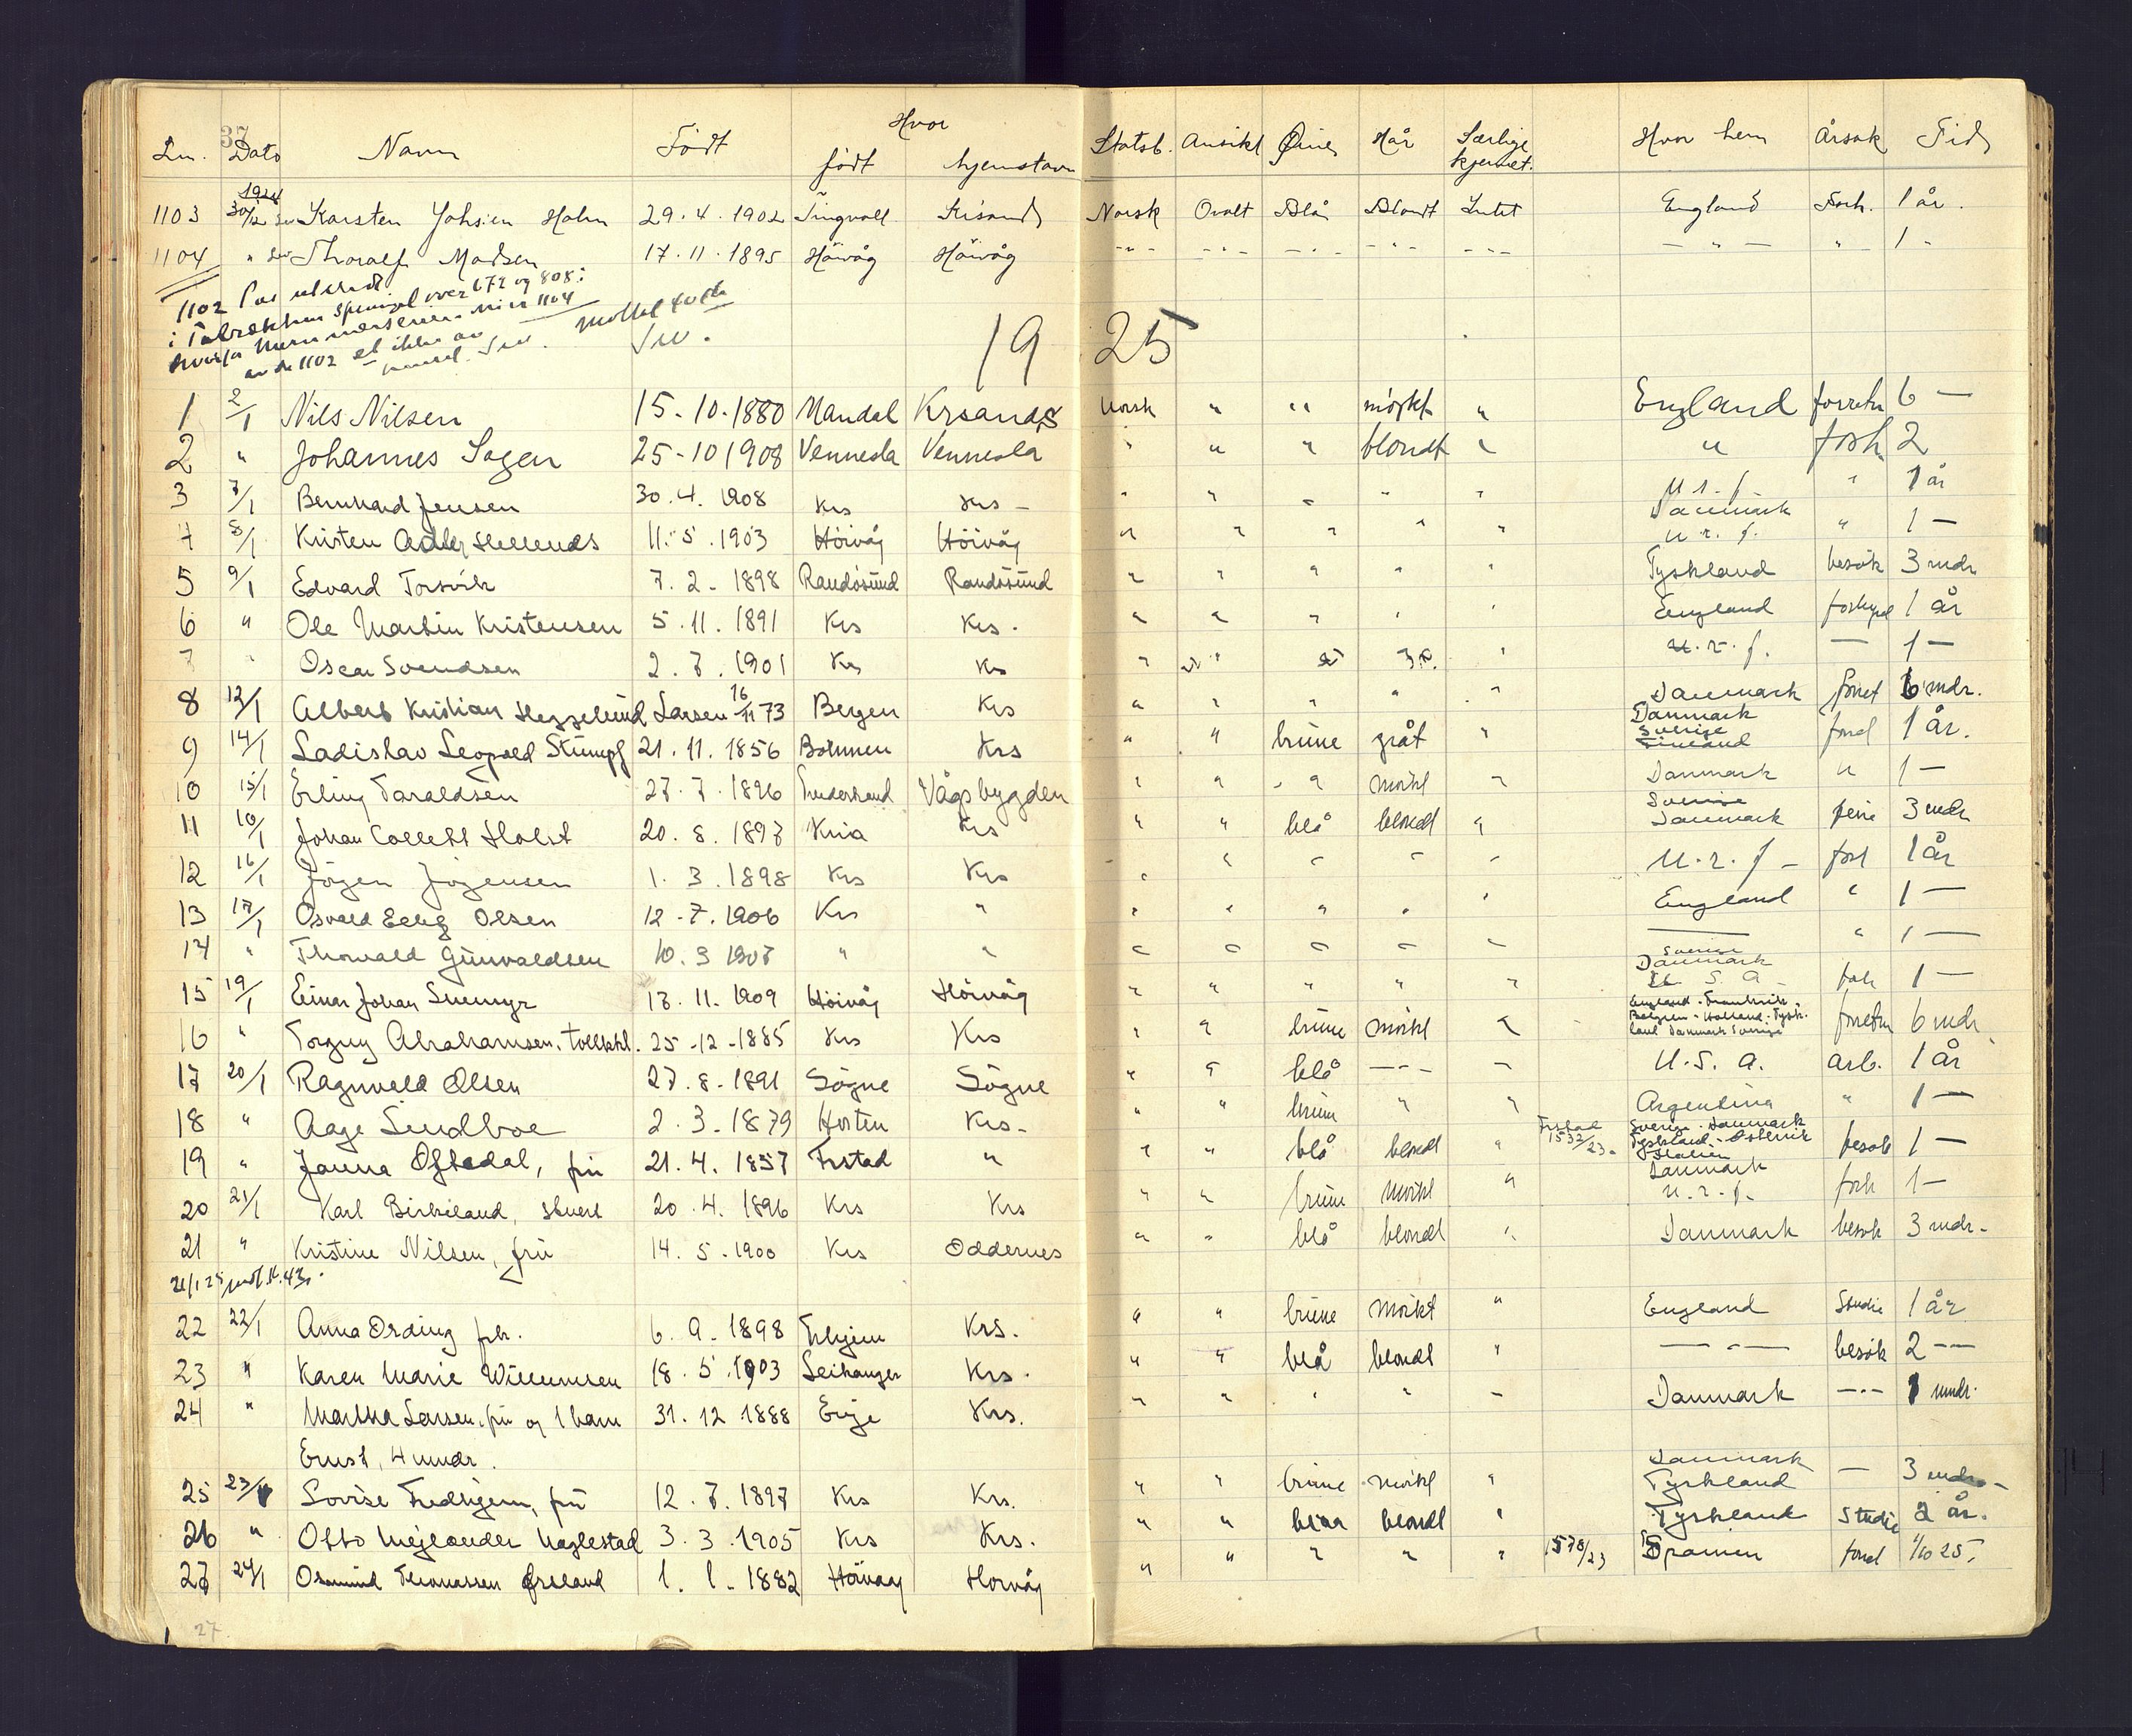 37
Hvor
Ln. Dato Navn Født født hjemstavn Statsb. Ansikt Øine Hår Særlige kjennet. Hvor hen Årsak Tid
1924
1103 30/12 Karsten Johsien Holm 29.4.1902 Tingvoll Krisand Norsk Ovalt Blå Blondt Intet England Forh. 1 år.
1104 " Thoralf Madsen 17.11.1895 Høivåg Høivåg -"- -"- -"- -"- -"- - " - " 1 -
1102 Pas utstedt
1925
1 2/1 Nils Nilsen 15-10-1880 Mandal Krsands Norsk " " mørkt " England forretn 6 —
2 " Johannes Sagen 25-10 1908 Vennesla Vennesla " " " blondt " " forh. 2
3 7/1 Bernhard Jensen 30.4.1908 Krs Krs - " " " " " U.r.f. " 1 år
4 8/1 Kristen 11.5.1903 Høivåg Høivåg " " " " " Danmark u.r.f. " 1 —
5 9/1 Edvard Torsvik 7.2-1898 Randøsund Randøsund " " " " " Tyskland besøk 3 mdr
6 " Ole Martin Kristensen 5.11.1891 Krs Krs. " " " " " England 1 år
7 " Oscar Svendsen 2.7.1901 Krs Krs " " " u.r.f. — 1 —
8 12/1 Albert Kristian Heggelund Larsen 16/11 73 Bergen Krs " " " " " Danmark forret 6 mdr.
9 14/1 Ladislav Leopold Stumpf 21.11.1856 Böhmen Krs " " brune gråt " Danmark Sverige Finland 1 år.
10 15/1 Erling Taraldsen 27.7.1896 Vågsbygden " " " mørkt " Danmark " 1 —
11 10/1 Johan Collett Holst 20.8.1897 Kria Krs " " blå blondt " Sverige Danmark ferie 3 mdr
12 16/1 Jörgen Jörgensen 1.3.1898 Krs Krs " " " " " U.r.f - forh 1 år
13 17/1 Osvald Olsen 12-7.1906 Krs " " " " " " England " 1 —
14 " Thorvald Gunvaldsen 10.3 1907 " " " " " " " — " 1 —
15 19/1 Einar Johan 17.11.1909 Høivåg Høivåg " " " " " Sverige Danmark U.S.A - forh 1 —
16 " Torgny Abrahamsen, 25-12-1885 Krs Krs " " brune mørkt " England. Frankrik. Belgien. Holland. Tyskland Danmark Sverige forretn 6 mdr
17 20/1 Ragnvald Olsen 27.8-1891 Søgne Søgne " " blå -"- " U.S.A. arb. 1 år
18 " Aage Lindboe 2.3.1879 Horten Krs- " " brune " " Argentina " 1 —
19 " Janna Oftedal, fru 21.4.1857 Frstad " " " blå blondt " Frstad 1532/23. Sverige. Danmark Tyskland Østerrik Italien besøk 1 —
20 21/1 Karl Birkeland, 20.4.1896 Krs Krs " " brune mørkt " Danmark u.r.f. forh 1 —
21 " Kristine Nilsen, fru 14.5.1900 Krs Oddernes " " blå blondt " Danmark besøk 3 mdr-
22 22/1 Anna Ording frk. 6.9.1898 Trhjem Krs. " " brune mørkt " England Studie 1 år
23 " Karen Marie Willumsen 18.5.1903 Leikanger Krs. " " blå blondt " — " — besøk 2 —
24 " Martha Larsen, fru og 1 barn 31.12 1888 Evje Krs. " " " " " Danmark -"- 1 mndr.
Ernst, 4 mndr.
25 23/1 Lovise Tredhjem, fru 12.7.1897 Krs Krs. " " brune mørkt " Danmark Tyskland — 3 mdr.
26 " Otto Mejlænder Haglestad 3.3.1905 Krs Krs. " " blaa blondt " Tyskland Studie 2 år.
27 24/1 Osmund Thomassen 1.1.1882 Høivåg Høivåg " " " " " 1578/23 Spanien 1/10 25.
27